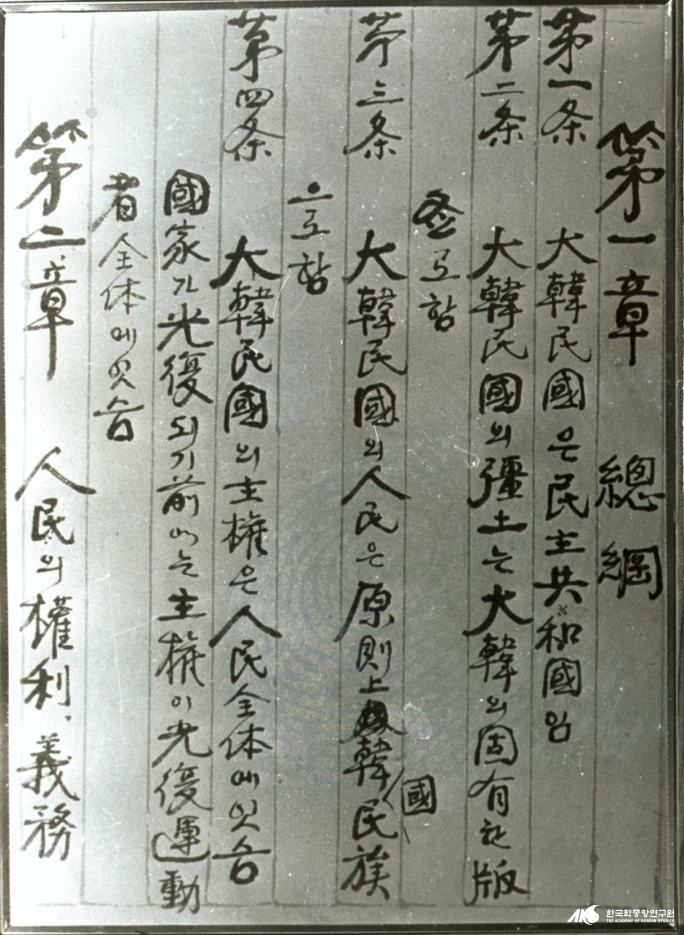 第一章 總綱
第一条 大韓民國은民主共和國임
第二条 大韓民國의彊土는大韓의固有한版
로함
第三条 大韓民國의人民은原則上韓國民族
으로함
第四条 大韓民國의主權은人民全体에잇슴
國家가光復되기前에는主権이光復運動
者全体에잇슴
第二章 人民의權利、義務
한국학중앙연구원
THE ACADEMY OF KOREAN STUDIES